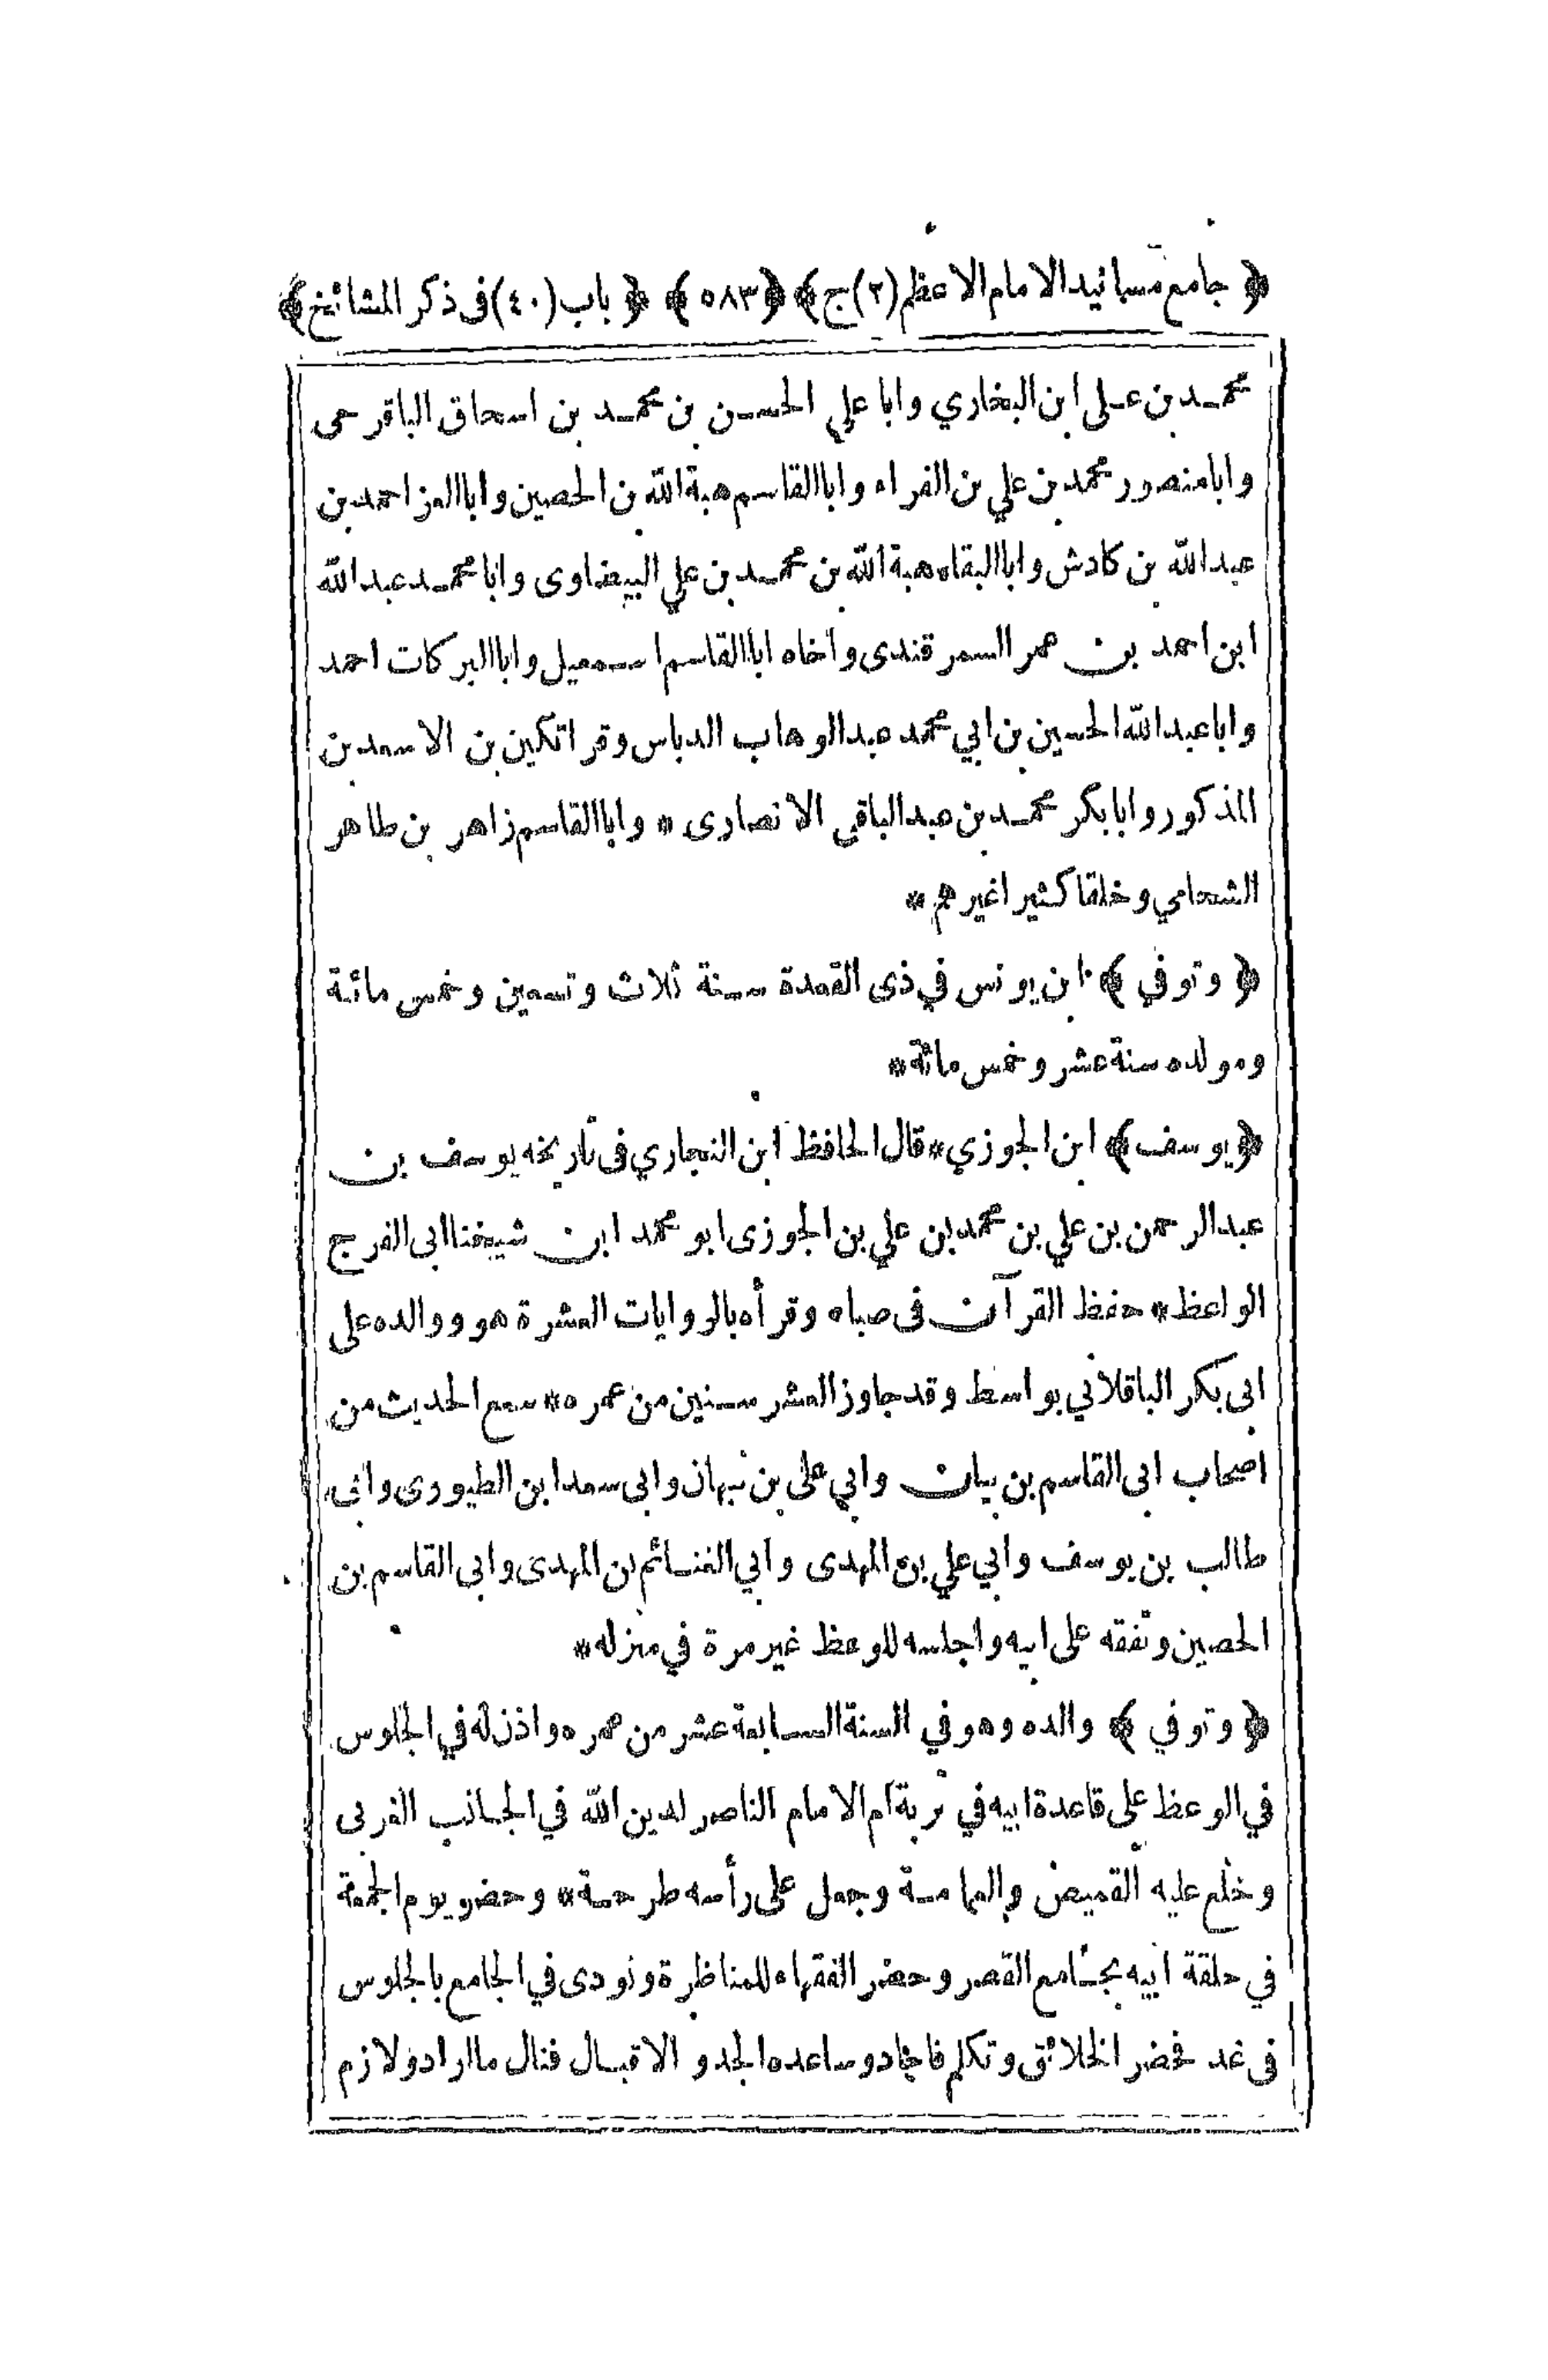 ﴿ جامع مسانيد الامام الاعظم (٢) ج ﴾ ﴿ ٥٨٣ ﴾ ﴿ باب (٤٠) فى ذكر المشائخ ﴾
محمد بن على ابن البخاري وابا علي الحسن بن محمد بن اسحاق الباقرحى
وابا منصور محمد بن علي بن الفراء وابا القاسم هبة الله بن الحصين وابا العز احمد بن
عبد الله بن كادش وابا البقاء هبة الله بن محمد بن علي البيضاوى وابا محمد عبد الله
ابن احمد بن عمر السمرقندى واخاه ابا القاسم اسمعيل وابا البركات احمد
وابا عبد الله الحسين بن ابي محمد عبد الوهاب الدباس وقراتكين بن الاسعد بن
المذكور وابا بكر محمد بن عبد الباقي الانصارى * وابا القاسم زاهر بن طاهر
الشحامي وخلقا كثيرا غيرهم *
﴿ وتوفي ﴾ ابن يونس في ذى القعدة سنة ثلاث وتسعين وخمس مائة
ومولده سنة عشر وخمس مائة *
﴿ يوسف ﴾ ابن الجوزي * قال الحافظ ابن النجاري فى تاريخه يوسف بن
عبد الرحمن بن علي بن محمد بن علي بن الجوزى ابو محمد ابن شيخنا ابى الفرج
الواعظ * حفظ القرآن فى صباه وقرأه بالروايات العشرة هو ووالده على
ابى بكر الباقلاني بواسط وقد جاوز العشر سنين من عمره * سمع الحديث من
اصحاب ابى القاسم بن بيان وابي على بن نبهان وابى سعد ابن الطيورى وابى
طالب بن يوسف وابي علي بن المهدى وابي الغنائم بن المهدى وابى القاسم بن
الحصين وتفقه على ابيه واجلسه للوعظ غير مرة في منزله *
﴿ وتوفي ﴾ والده وهو في السنة السابعة عشر من عمره واذن له في الجلوس
في الوعظ على قاعدة ابيه في تربة ام الامام الناصر لدين الله في الجانب الغربى
وخلع عليه القميص والعمامة وجعل على رأسه طرحة * وحضر يوم الجمعة
في حلقة ابيه بجامع القصر وحضر الفقهاء للمناظرة ونودى في الجامع بالجلوس
فى غد فحضر الخلائق وتكلم فاجاد وساعده الجد و الاقبال فنال ما اراد ولازم